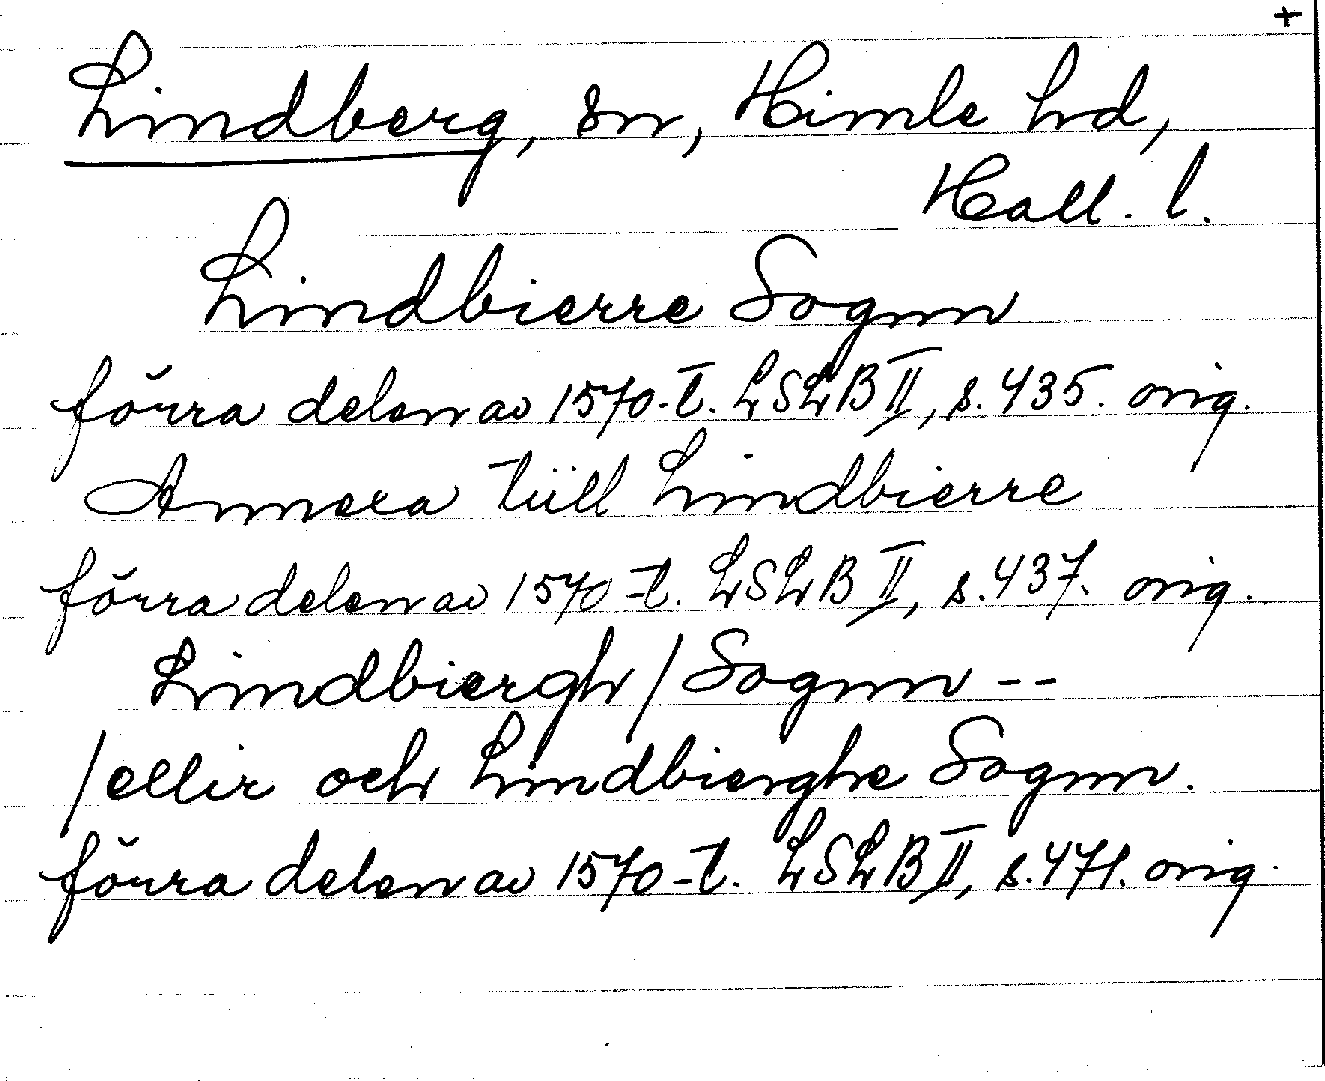 +
Lindberg, sn, Himle hd,
Hall. l.
Lindbierre Sognn
förra delen av 1570-t. LSLB II, s. 435. orig.
Annexa tiill Lindbierre
förra delen av 1570-t. LSLB II, s. 437. orig.
Lindbiergh / Sognn --
/ ellir och Lindbierghe Sognn.
förra delen av 1570-t. LSLB II, s. 471. orig.